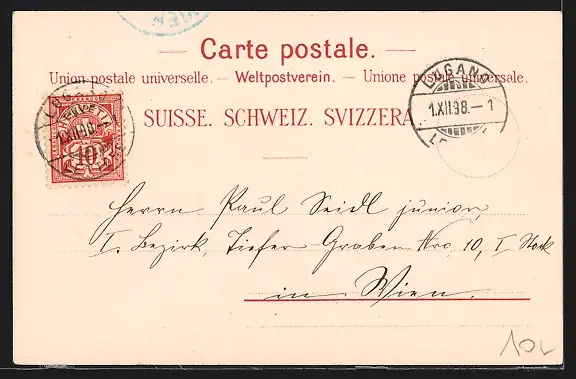 WIEN
Carte postale.
Union postale universelle. — Weltpostverein. — Unione postale universale.
SUISSE. SCHWEIZ. SVIZZERA.
LUGANO
1.XII.98.–1
HELVETIA
10
LUGANO
1.XII.98.
LETTRES
Herrn Paul Seidl junior,
I. Bezirk, Tiefer Graben Nro. 10, I. Stock
in Wien.
10L